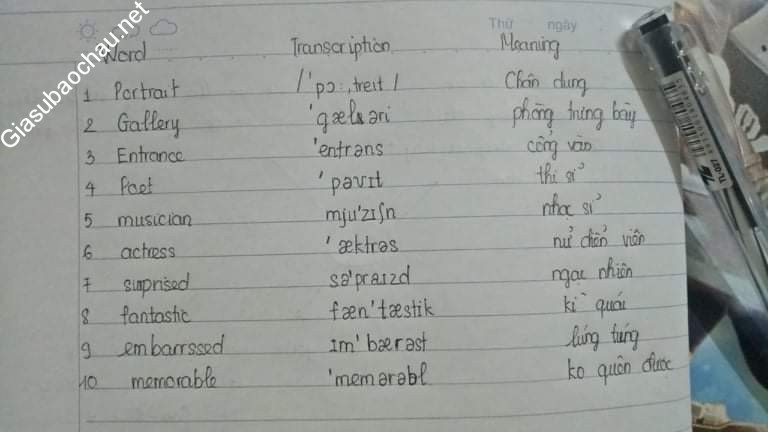 Thứ ngày
Word Transcription Meaning
1 Portrait /'pɔ:,treit/ Chân dung
2 Gallery 'gæləri phòng trưng bày
3 Entrance 'entrəns cổng vào
4 Poet 'pəʊɪt thi sỉ
5 musician mju'zɪʃn nhạc sỉ
6 actress 'æktrəs nử diển viên
7 suprised sə'praɪzd ngạc nhiên
8 fantastic fæn'tæstik kì quái
9 embarrssed ɪm'bærəst lúng túng
10 memorable 'memərəbl ko quên được
Giasubaochau.net
TL-027